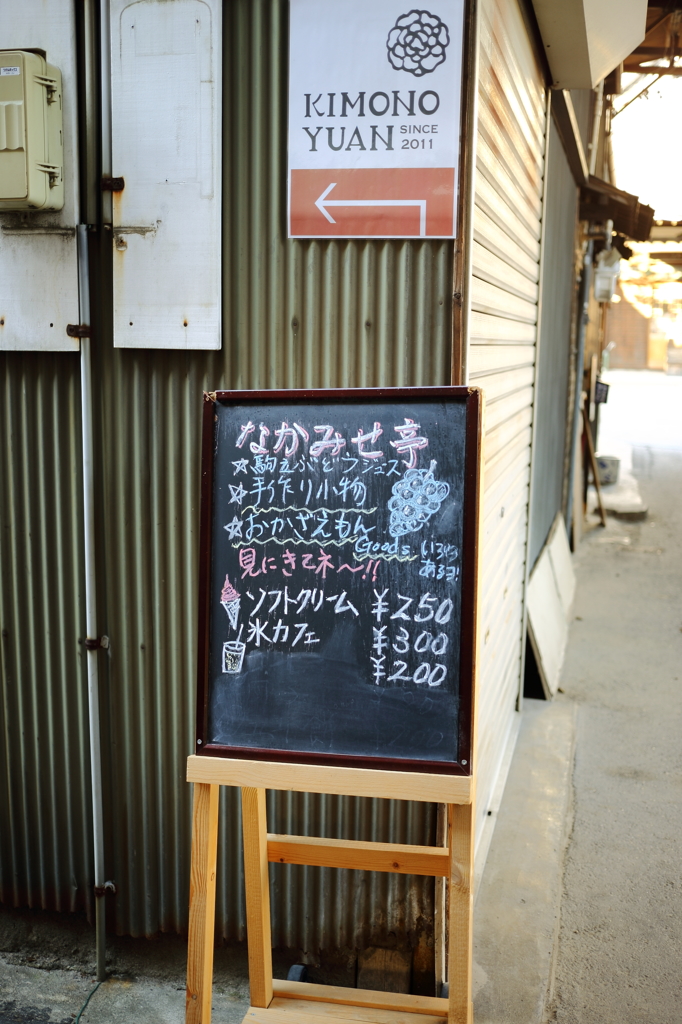 KIMONO
YUAN SINCE
2011
なかみせ亭
☆駒立ぶどうジュース
☆手作り小物
☆おかざえもん
Goods いろいろ
あるヨ!
見にきてネ〜!!
ソフトクリーム ¥250
氷カフェ ¥300
¥200